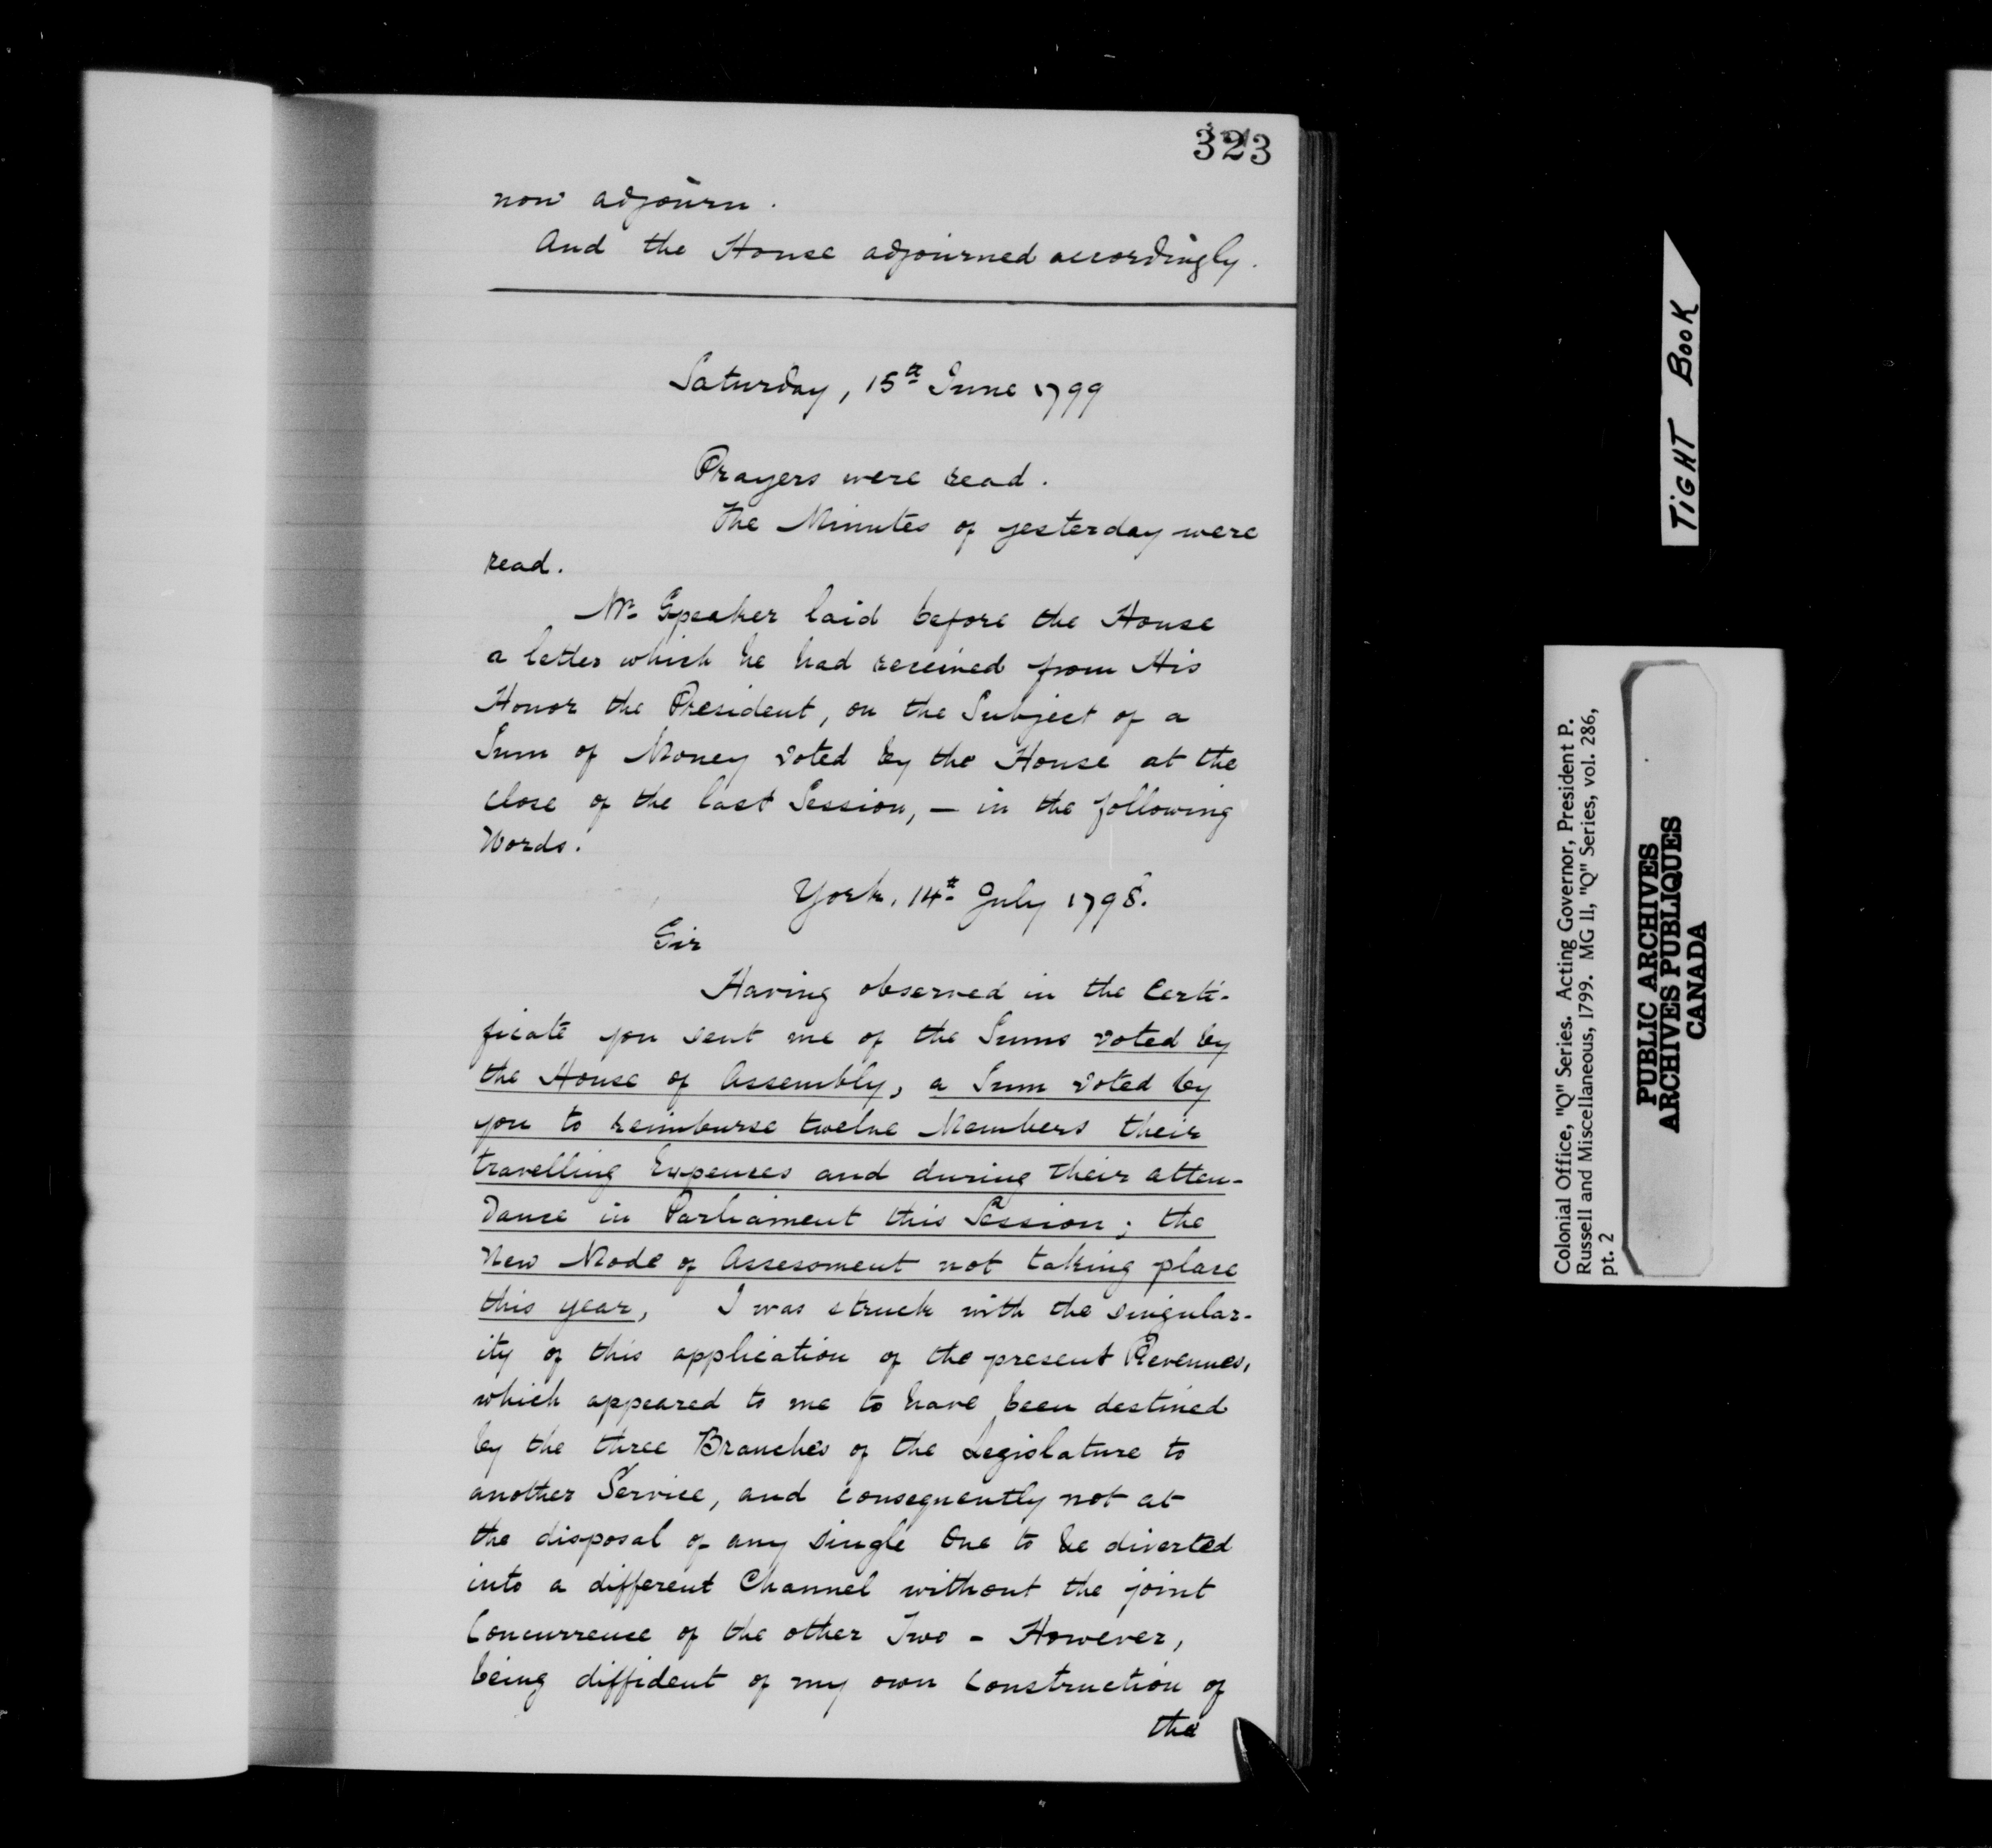 323
now adjourn.
And the House adjourned accordingly.
Saturday, 15th June 1799
Prayers were read.
The Minutes of yesterday were
read.
Mr. Speaker laid before the House
a letter which he had received from His
Honor the President, on the Subject of a
Sum of Money voted by the House at the
close of the last Session, — in the following
Words.
York, 14th July 1798.
Sir
Having observed in the Certi-
ficate you sent me of the Sums voted by
the House of Assembly, a Sum voted by
you to reimburse twelve Members their
travelling Expences and during their atten-
dance in Parliament this Session; the
New Mode of Assessment not taking place
this year, I was struck with the singular-
ity of this application of the present Revenues,
which appeared to me to have been destined
by the three Branches of the Legislature to
another Service, and consequently not at
the disposal of any single One to be diverted
into a different Channel without the joint
Concurrence of the other Two - However,
being diffident of my own Construction of
the
TIGHT BOOK
Colonial Office, "Q" Series. Acting Governor, President P.
Russell and Miscellaneous, 1799. MG 11, "Q" Series, vol. 286,
pt. 2
PUBLIC ARCHIVES
ARCHIVES PUBLIQUES
CANADA